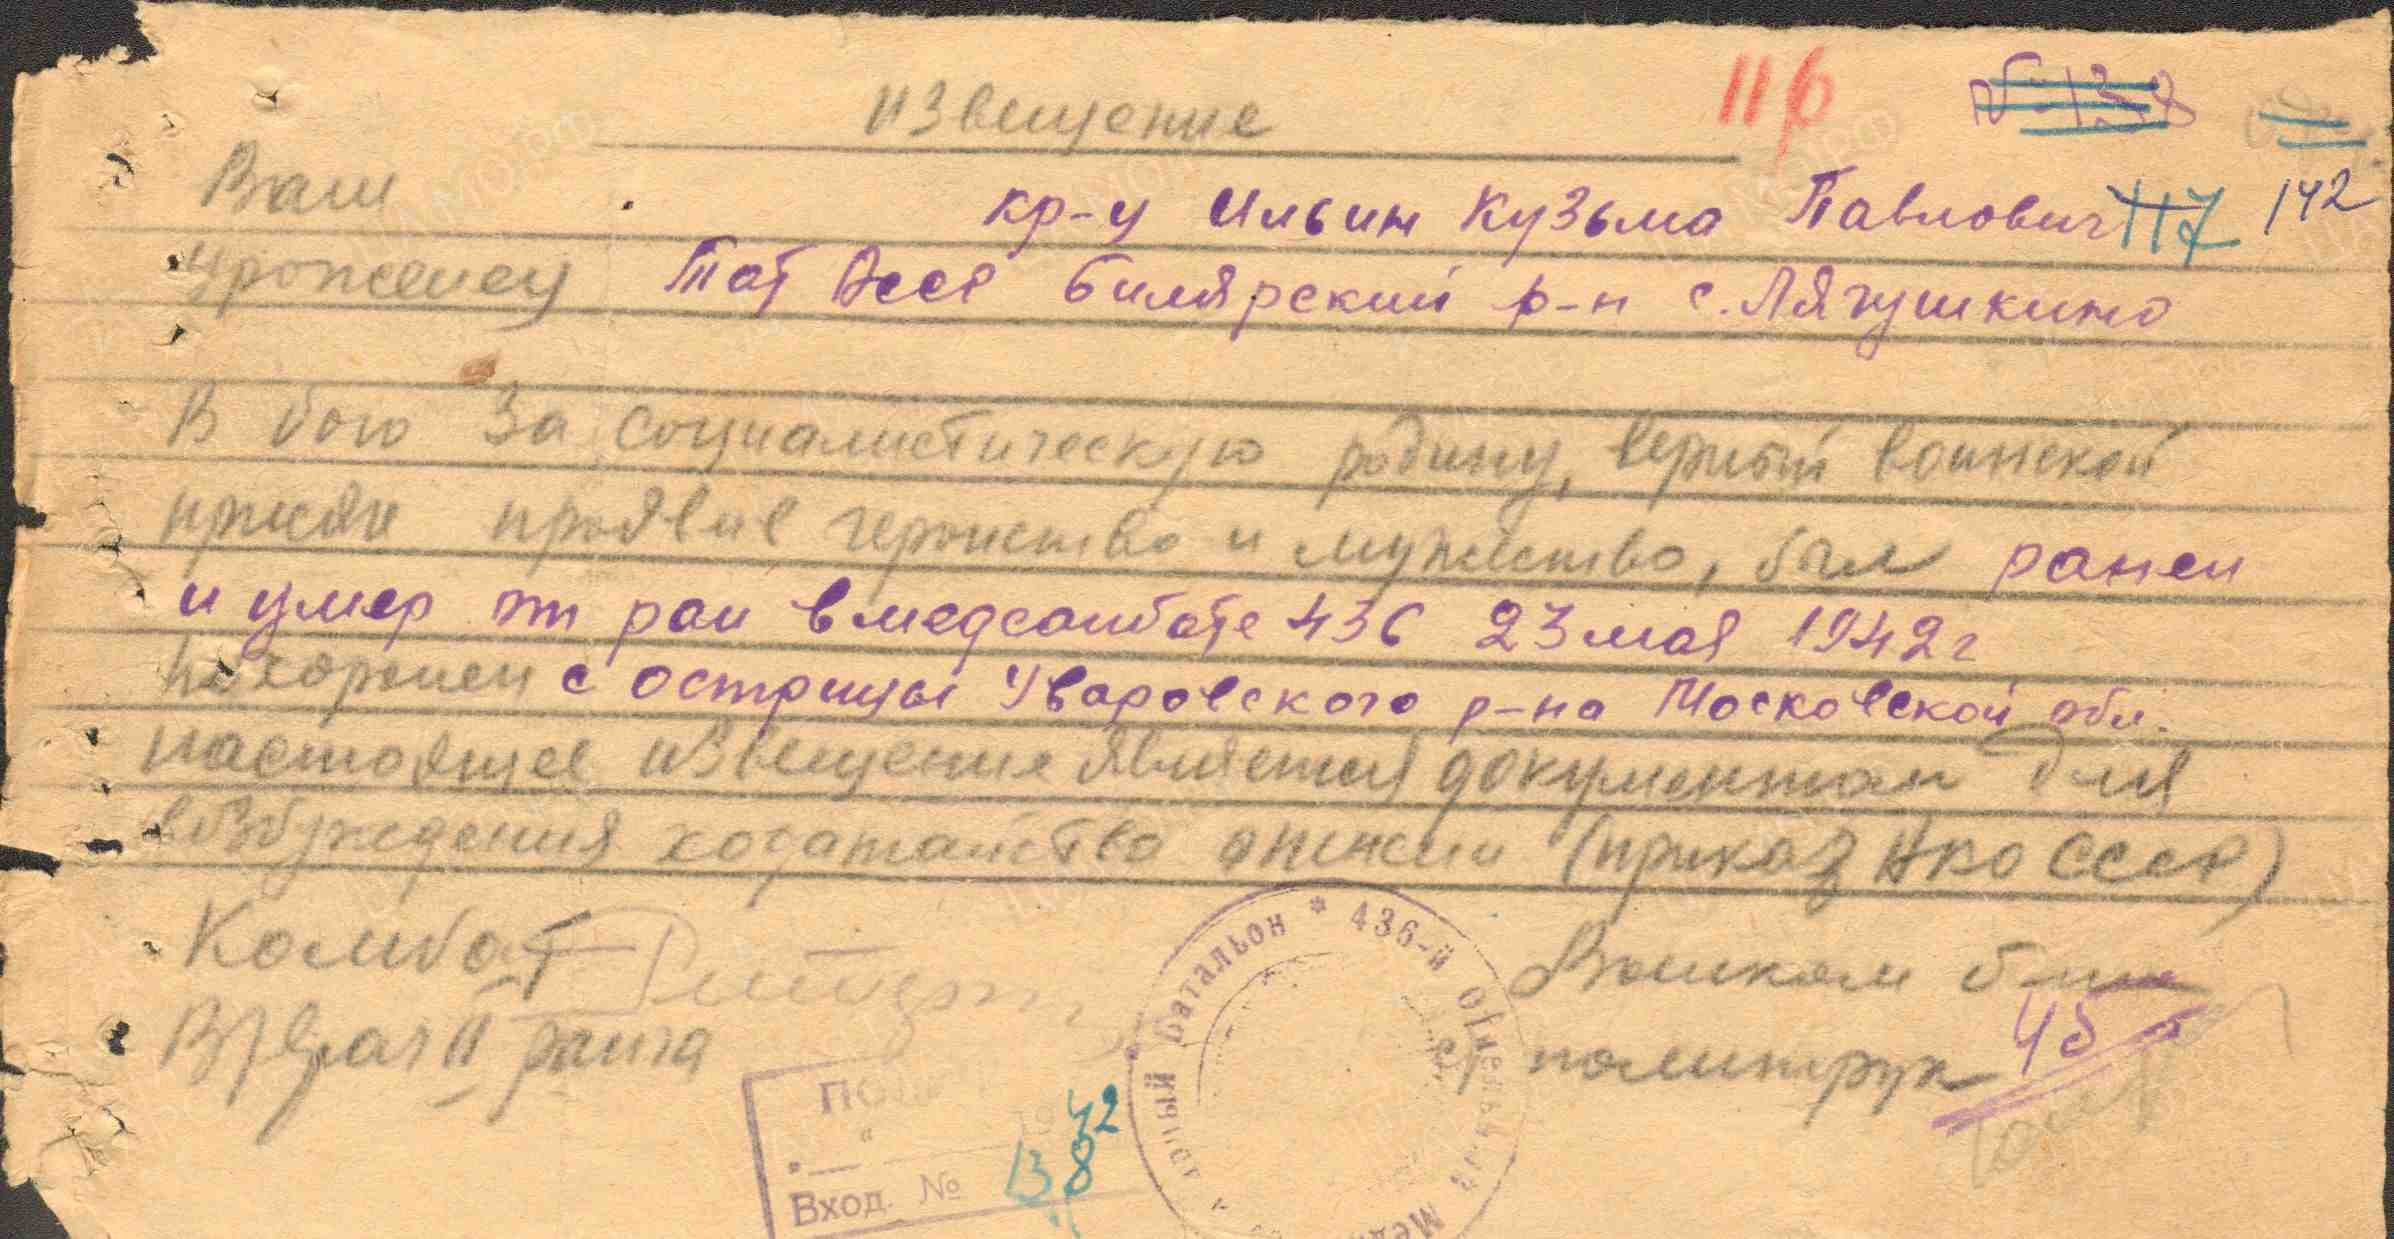 извещение
116
142
Ваш
кр-у Ильин Кузьма Павлович 117
уроженец Тат Асср Билярский р-н с. Лягушкино
В бою за социалистическую родину, верный воинской
присяги проявив геройство и мужество, был ранен
и умер от ран в медсанбате 436 23 мая 1942 г
похоронен с острицы Уваровского р-на Московской обл.
настоящее извещение является документом для
возбуждения ходатайство о пенсии (приказ НКО СССР)
Комбат
В/врач II ранга
Военком б-на
ст политрук
45
436-й Отдельный Мед
батальон
19 42
Вход. № 138